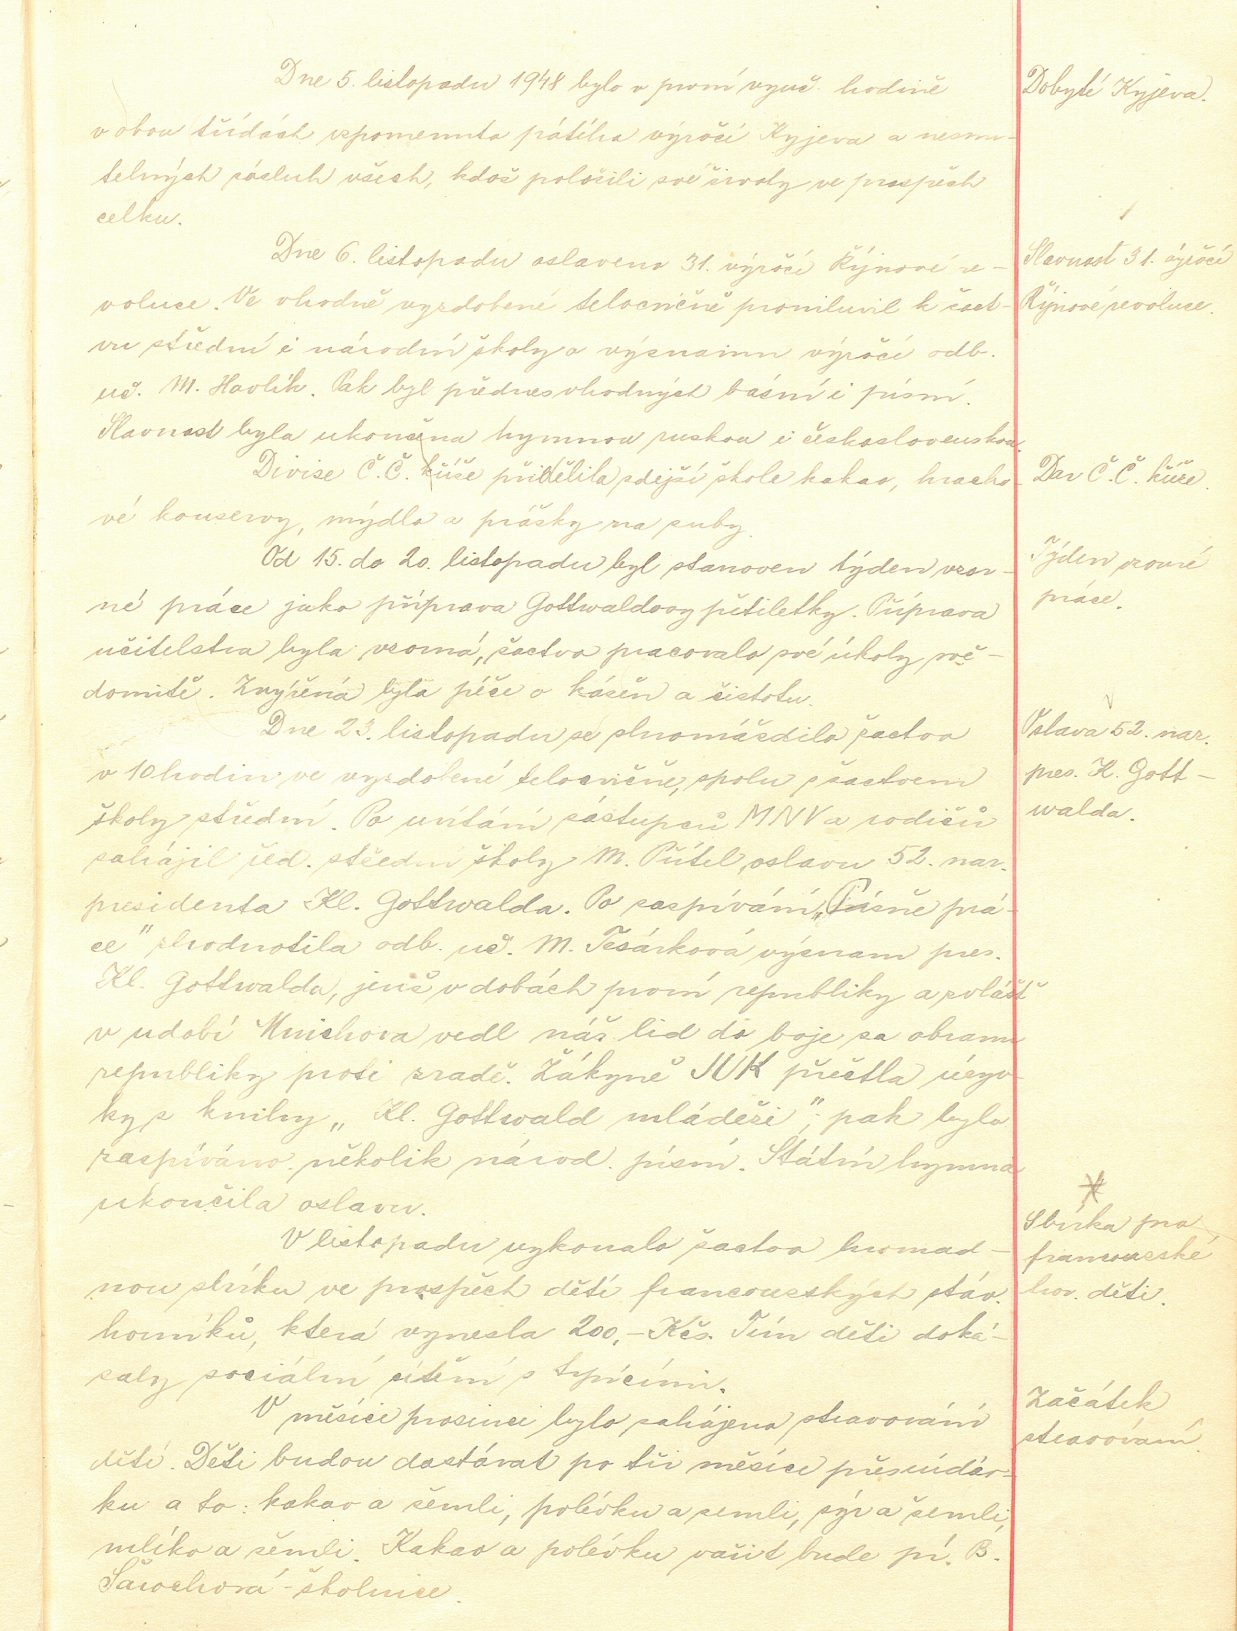 Dne 5. listopadu 1948 bylo v první vyuč. hodině
Dobytí Kyjeva.
v obou třídách vzpomenuto pátého výročí Kyjeva a nesmr-
telných zásluh všech, kdož položili své životy ve prospěch
celku.
Dne 6. listopadu oslaveno 31. výročí Říjnové re-
Slavnost 31. výročí
voluce. Ve vhodně vyzdobené tělocvičně promluvil k žact-
Říjnové revoluce.
vu střední i národní školy o významu výročí odb.
uč. M. Havlík. Pak byl přednes vhodných básní i písní.
Slavnost byla ukončena hymnou ruskou i československou.
Divise Č. Č. kříže přidělila zdejší škole kakao, hracho-
Dar Č. Č. kříže.
vé konservy, mýdlo a prášky na zuby.
Od 15. do 20. listopadu byl stanoven týden vzor-
Týden vzorné
né práce jako příprava Gottwaldovy pětiletky. Příprava
práce.
učitelstva byla vzorná, žactvo pracovalo své úkoly svě-
domitě. Zvýšená byla péče o kázeň a čistotu.
Dne 23. listopadu se shromáždilo žactvo
Oslava 52. nar.
v 10 hodin ve vyzdobené tělocvičně, spolu s žactvem
pres. K. Gott-
školy střední. Po uvítání zástupců MNV a rodičů
walda.
zahájil řed. střední školy M. Přítel, oslavu 52. nar.
presidenta Kl. Gottwalda. Po zaspívání „Písně prá-
ce" zhodnotila odb. uč. M. Tesárková význam pres.
Kl. Gottwalda, jenž v dobách první republiky a zvlášť
v udobí Mnichova vedl náš lid do boje za obranu
republiky proti zradě. Žákyně JUK přečtla úryv-
ky z knihy „Kl. Gottwald mládeži", pak bylo
zaspíváno několik národ. písní. Státní hymna
ukončila oslavu.
V listopadu vykonalo žactvo hromad-
Sbírka pro
nou sbírku ve prospěch dětí francouzských stáv.
francouzské
hor. děti.
horníků, která vynesla 200,- Kčs. Tím děti doká-
zaly sociální cítění s trpícími.
V měsíci prosinci bylo zahájeno stravování
Začátek
stravování.
dětí. Děti budou dostávat po tři měsíce přesnídáv-
ku a to: kakao a žemli, polévku a žemli, sýr a žemli,
mléko a žemli. Kakao a polévku vařit bude pí. B.
školnice.